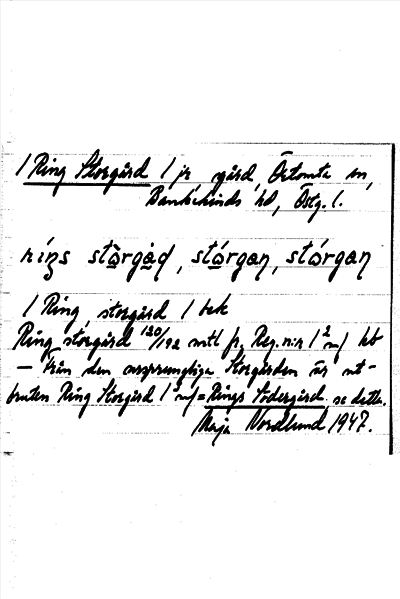 / Ring Storgård / jr gård, Örtomta sn,
Bankekinds hd, Östg. l.
riŋs stòrgàd, stórgan, stórgan
/ Ring, storgård / bek
Ring storgård 120/192 mtl fr, Reg. n:r 1² m/ hb
— Från den ursprungliga Storgården är ut-
bruten Ring Storgård 1³ m/ = Rings Södergård se detta.
Maja Nordlund 1947.